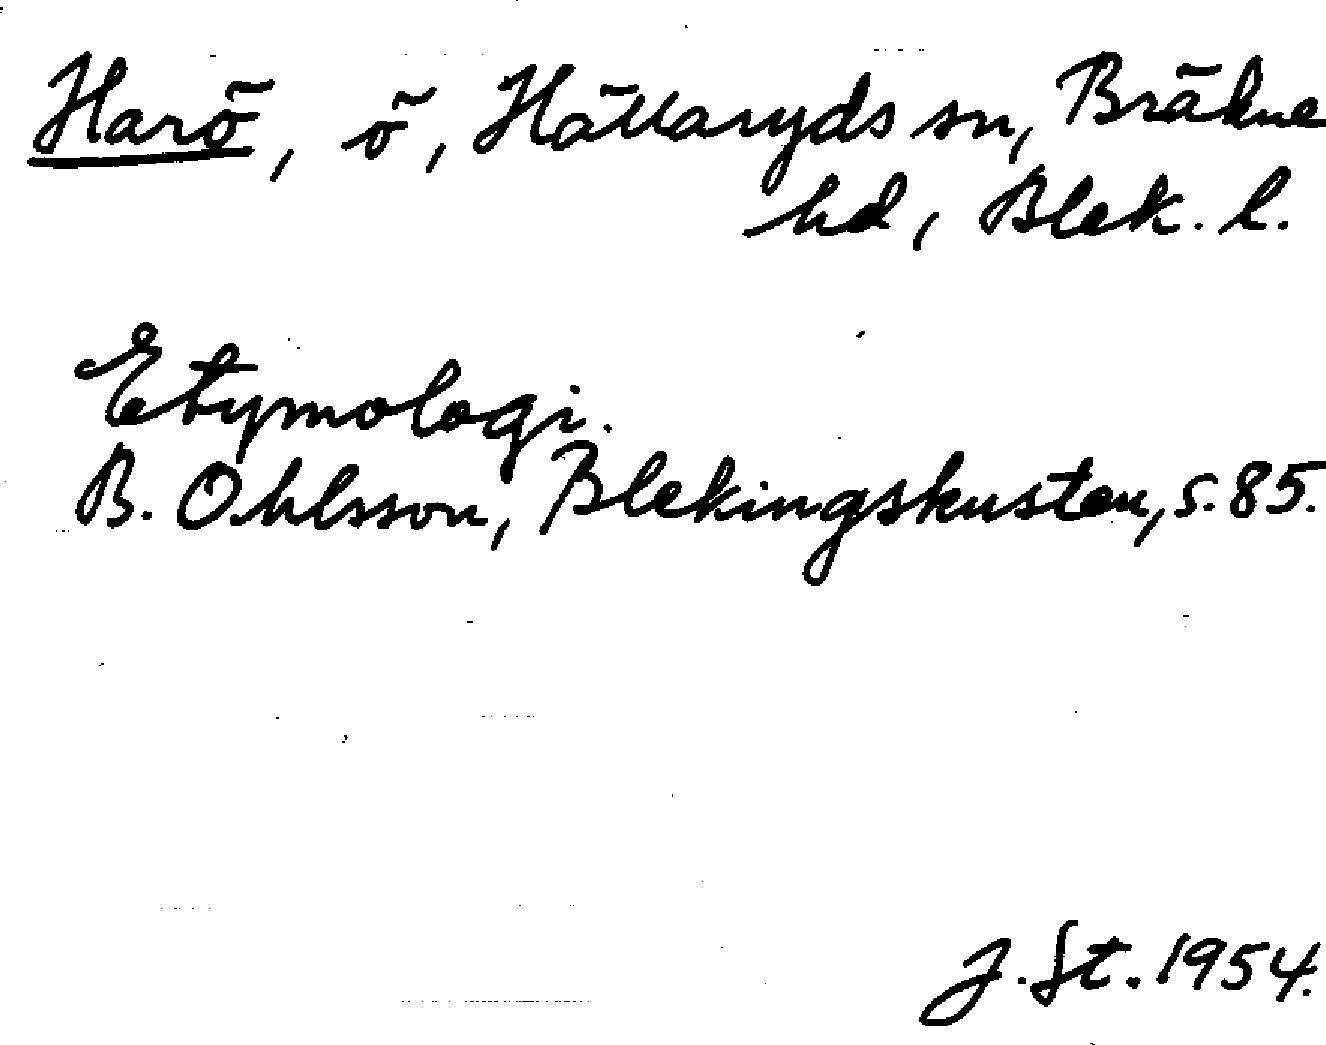 Harö, ö, Hällaryds sn, Bräkne
hd, Blek. l.
Etymologi.
B. Ohlsson, Blekingskusten, s. 85.
J. St. 1954.